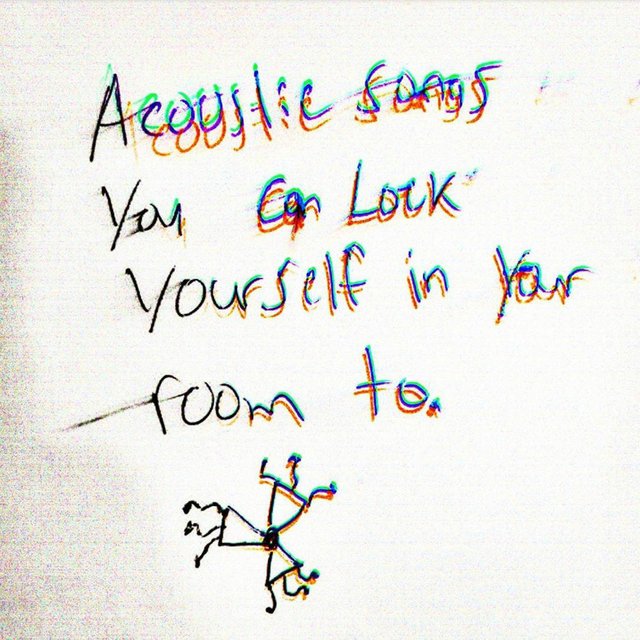 Acoustic songs
You Can Lock
yourself in your
room to.